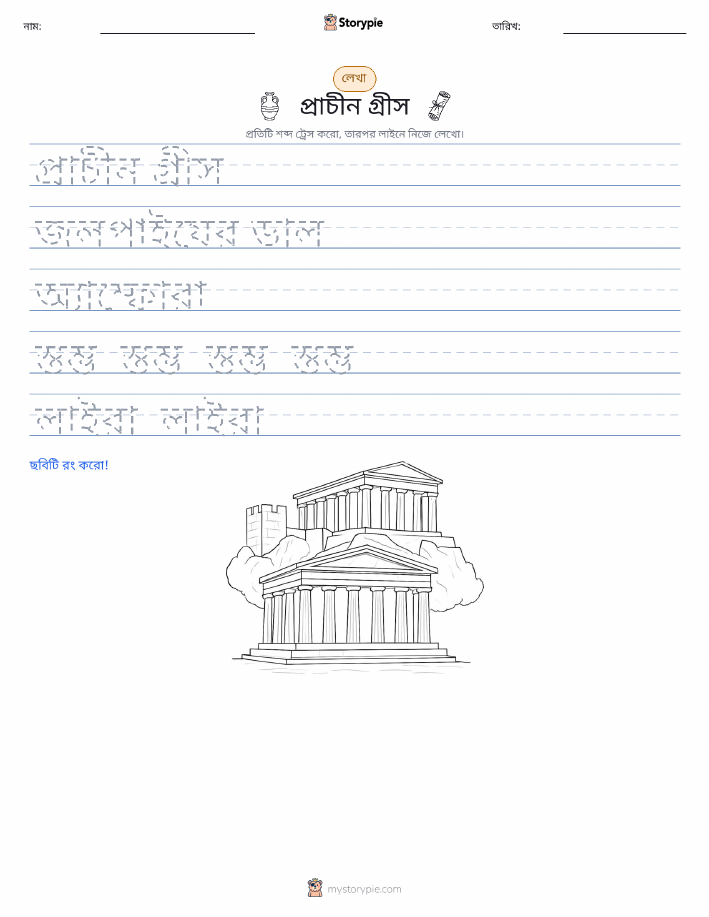 নাম:
Storypie
তারিখ:
লেখা
প্রাচীন গ্রীস
প্রতিটি শব্দ ট্রেস করো, তারপর লাইনে নিজে লেখো।
প্রাচীন গ্রীস
জলপাইয়ের ডাল
অ্যাম্ফোরা
স্তম্ভ স্তম্ভ স্তম্ভ স্তম্ভ
লাইরা লাইরা
ছবিটি রং করো!
mystorypie.com